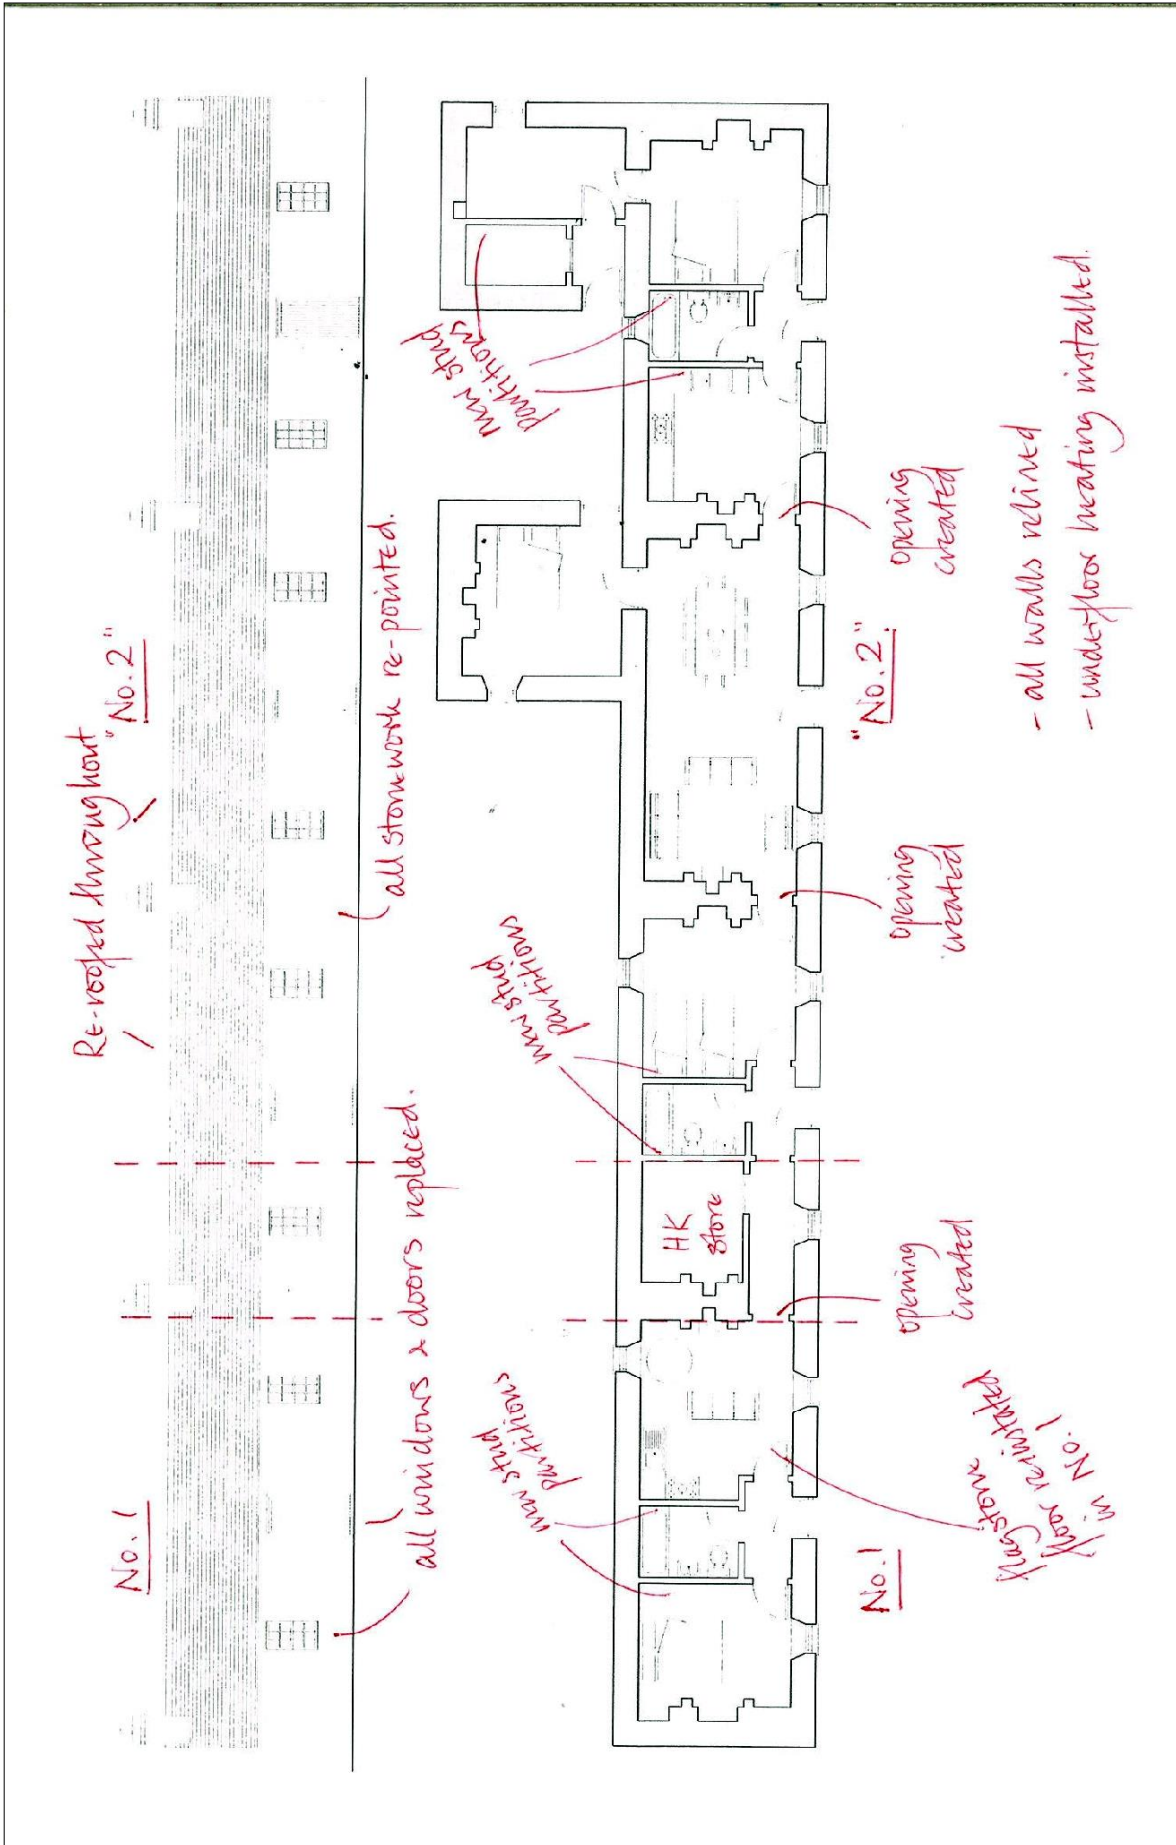 Re-roofed throughout
No. 1
"No. 2"
all windows & doors replaced.
all stonework re-pointed.
new stud
partitions
new stud
partitions
new stud
partitions
HK
Store
opening
created
opening
created
opening
created
No. 1
"No. 2"
flagstone
floor reinstated
in No. 1
- all walls relined
- underfloor heating installed.